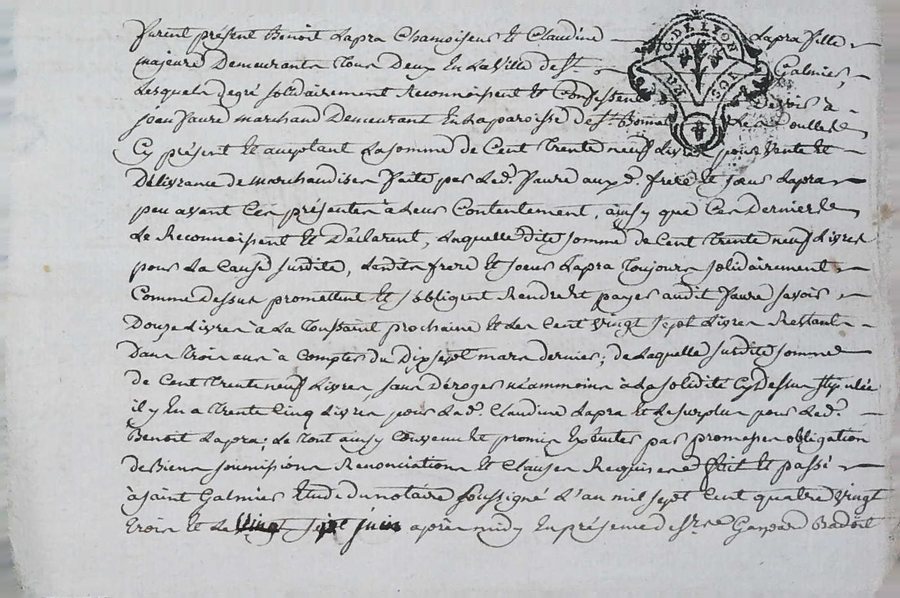 furent présent Benoit Lapra Chamoiseur et Claudine Lapra fille
majeure Demeurants Tous Deux En La Ville de St. Galmier,
Lesquels degré solidairement Reconnoissent et Confessent Devoir à
jean faure marchand Demeurant En La paroisse de St. Bonnet Les oulles
Cy présent et acceptant La somme de Cent Trente neuf Livres pour Vente et
Délivrance de marchandises faite par Led. faure auxd. frere et soeur Lapra
peu avant Ces présentes à Leur Contentement, ainsy que Ces Derniers
Le Reconnoissent et Déclarent, Laquelle dite somme de Cent Trente neuf Livres
pour La Cause susdite, Lesdits frere et soeur Lapra Toujours solidairement
Comme Dessus promettent et s'obligent Rendre et payer audit faure savoir
Douze Livres à La Toussaint prochaine et Les Cent Vingt sept Livres Restants
Dans Trois ans à Compter du Dix sept mars dernier; de Laquelle susdite somme
de Cent Trente neuf Livres, sans Déroger néammoins à La solidité Cy Dessus stipulée
il y En a Trente Cinq Livres pour Lad. Claudine Lapra et Le surplus pour Led.
Benoit Lapra; Le Tout ainsy Convenu et promis Exécuter par promesses obligation
de Biens soumissions Renonciations et Clauses Requises fait et passé
à saint Galmier Etude du notaire soussigné L'an mil sept Cent quatre Vingt
trois et Le Vingt sept juin après midy En présence de Sr. Gaspard Badoil
G. DE LYON